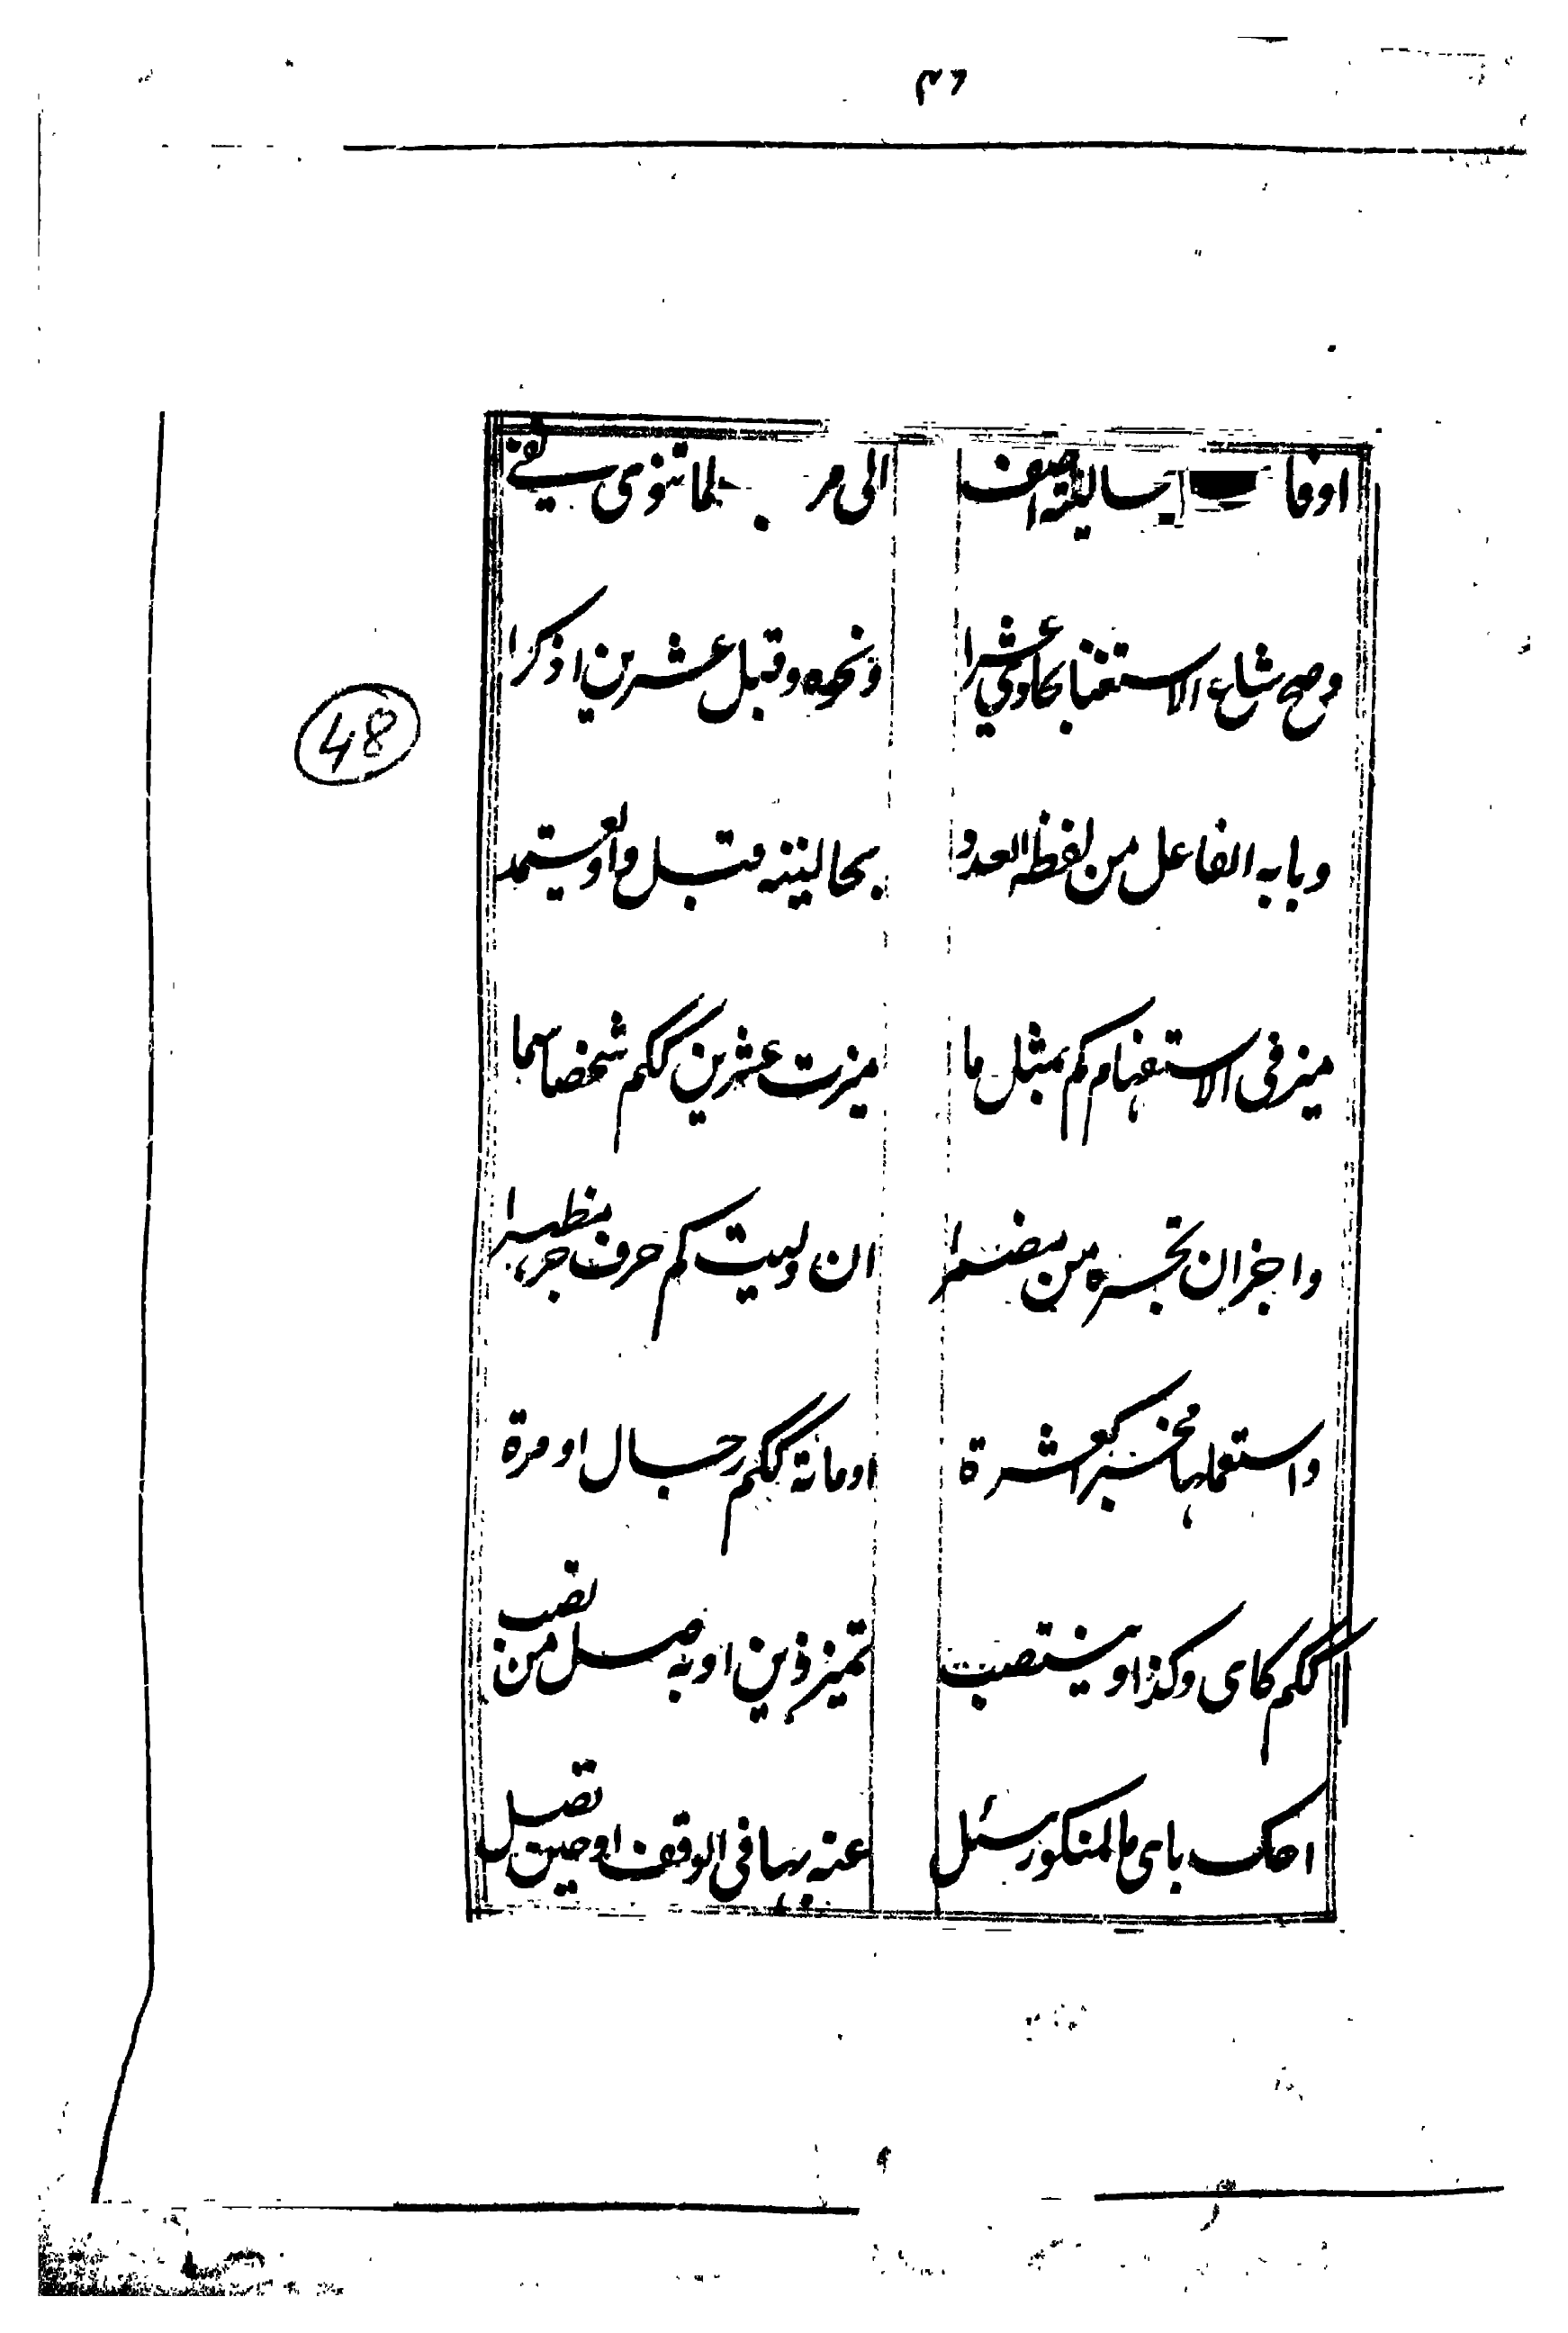 ٤٦
اوفا بحالتيه اضف الى مر بما تنوى يفى
وصح شاع الاستغنا بحادى عشرا ونحوه وقبل عشرين اذكرا
وبابه الفاعل من لفظ العدد بحالتيه قبل واو يعتمد
ميز فى الاستفهام كم بمثل ما ميزت عشرين ككم شخصا سما
واجز ان تجره من مضمرا ان وليت كم حرف جر مظهرا
واستعملنها مخبرا كعشرة او مائة ككم رجال او مرة
ككم كاى وكذا وينتصب تميز ذين او به صل من تصب
احك باى ما لمنكور سئل عنه بها فى الوقف او حين تصل
48